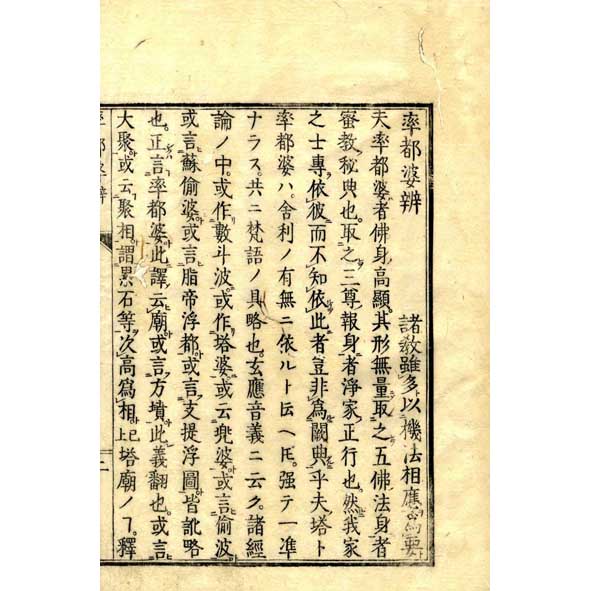 率都婆辨　諸教雖多以機法相應爲要
夫率都婆者佛身高顯其形無量取之五佛法身者
蜜教秘典也取之三尊報身者淨家正行也然我家
之士專依彼而不知依此者豈非爲闕典乎夫塔ト
率都婆ハ舎利ノ有無ニ依ルト云ヘ𪜈强テ一準
ナラス共ニ梵語ノ具略也玄應音義ニ云ク諸經
論ノ中或作數斗波或作塔婆或云兜婆或言偷波
或言蘇偷婆或言脂帝浮都或言支提浮圖皆訛略
也正言率都婆此譯云廟或言方墳此義翻也或言
大聚或云聚相謂累石等次高爲相已上塔廟ノヿ釋
率都婆辨